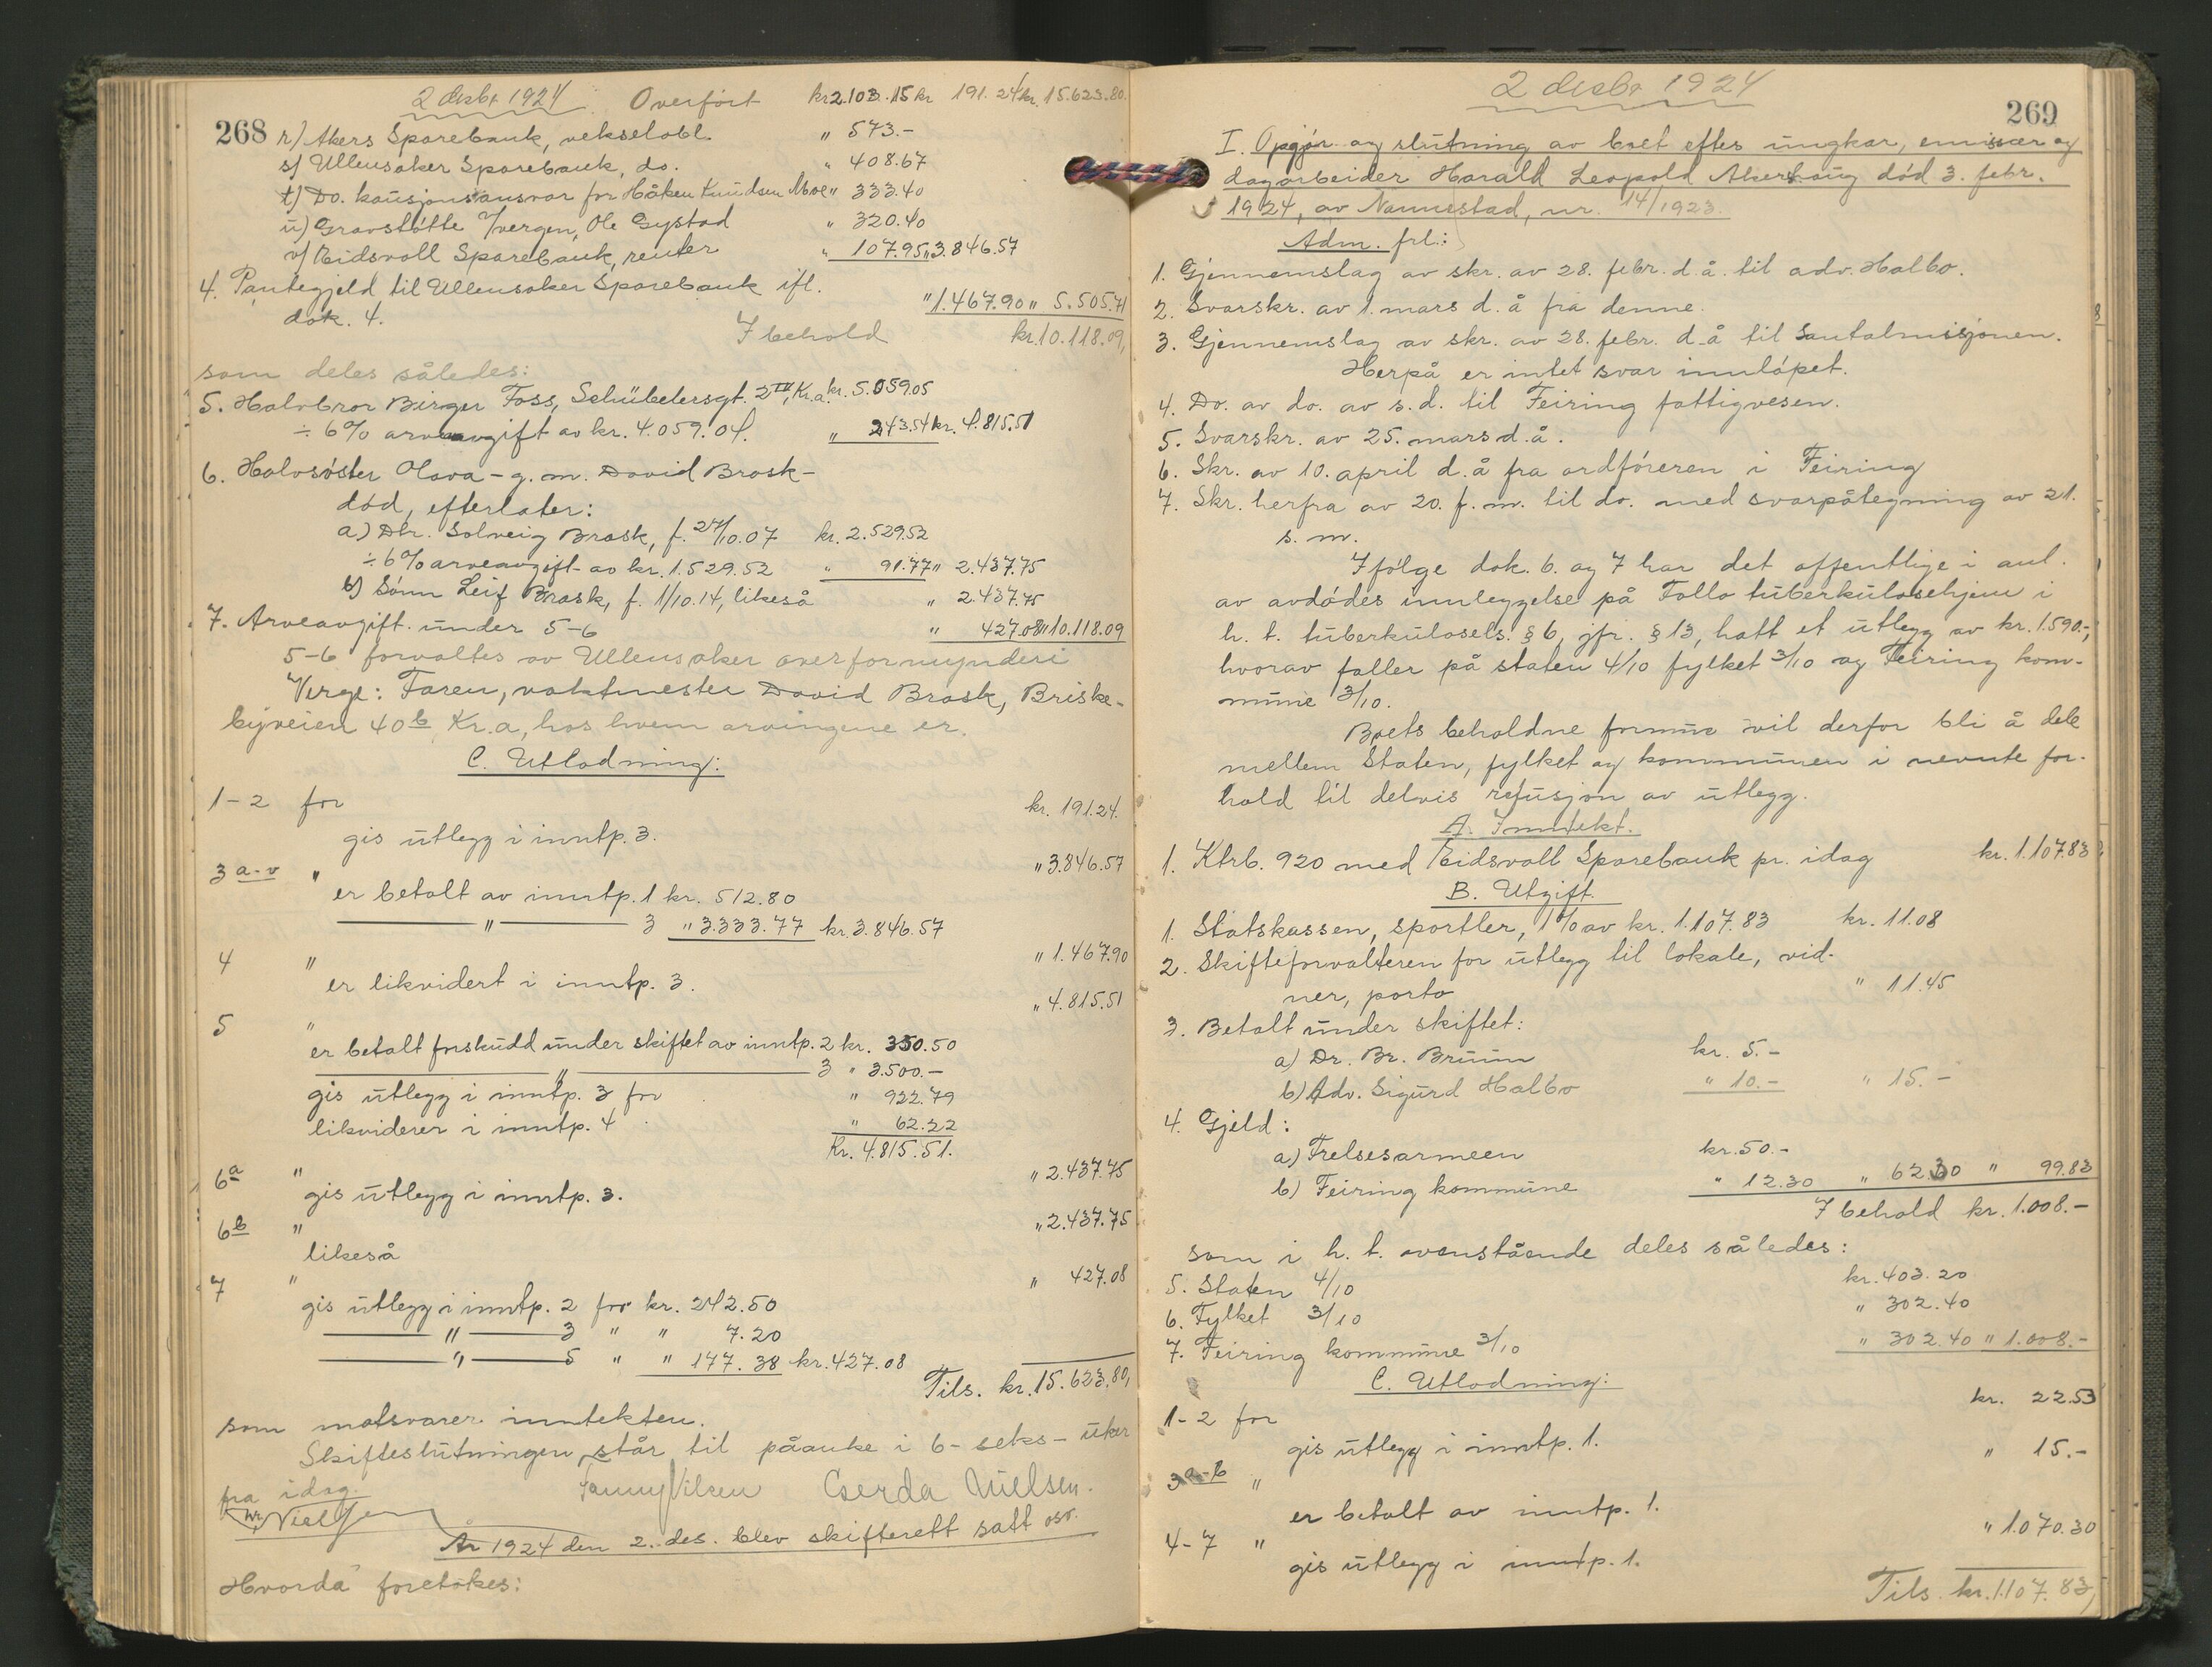 2 desbr 1924 Overført kr 2.103.15 kr 191.24 kr. 15.623.80.
268 r) Akers Sparebank, vekselobl. " 573.-
s) Ullensaker Sparebank, do. " 408.67
t) Do. kausjonsansvar for Håken Knudsen Moe " 333.40
u) Gravstøtte Iversen, Ole Gystad " 320.40
v) Eidsvoll Sparebank, renter " 107.95 " 3.846.57
4. Pantegjeld til Ullensaker Sparebank ifl.
dok. 4. " 1.467.90 " 5.505.71
I behold kr. 10.118.09,
som deles således:
5. Halvbror Birger Foss, Schübelersgt. 2 IV, Kr.a. kr. 5.059.05
÷ 6% arveavgift av kr. 4.059.04. " 243.54 kr. 4.815.51
6. Halvsøster Olava - g. m. David Brask -
død, efterlater:
a) Dtr. Solveig Brask, f. 24/10.07 kr. 2.529.52
÷ 6% arveavgift av kr. 1.529.52 " 91.77 " 2.437.75
b) Sønn Leif Brask, f. 1/10.14, likeså " 2.437.75
7. Arveavgift under 5-6 " 427.08 " 10.118.09
5-6 forvaltes av Ullensaker overformynderi
Verge: Faren, vaktmester David Brask, Briske-
byveien 40 b Kr.a, hos hvem arvingene er.
C. Utlodning:
1-2 for kr. 191.24.
gis utlegg i inntp. 3.
3 a-v " " 3.846.57
er betalt av inntp. 1 kr. 512.80
" 3 " 3.333.77 kr. 3.846.57
4 " " 1.467.90
er likvidert i inntp. 3.
5 " " 4.815.51
er betalt forskudd under skiftet av inntp. 2 kr. 330.50
" 3 " 3.500.-
gis utlegg i inntp. 3 for " 922.79
likviderer i inntp. 4 " 62.22
Kr. 4.815.51.
6 a " " 2.437.75
gis utlegg i inntp. 3.
6 b " " 2.437.75
likeså
7 " " 427.08
gis utlegg i inntp. 2 for kr. 242.50
" 3 " " 7.20
" 5 " " 177.38 kr. 427.08
Tils. kr. 15.623.80,
som motsvarer inntekten.
Skifteslutningen står til påanke i 6 - seks - uker
fra idag.
Fanny Nilsen Gerda Nielsen.
År 1924 den 2. des. blev skifterett satt osv.
Hvorda foretokes:
2 desbr 1924
269
I. Opgjør og slutning av boet efter ungkar, emissær og
dagarbeider Harald Leopold Akershaug død 3. febr.
1924, av Nannestad, nr. 14/1923.
Adm. frl.:
1. Gjennemslag av skr. av 28. febr. d.å. til adv. Halbo.
2. Svarskr. av 1. mars d. å fra denne.
3. Gjennemslag av skr. av 28. febr. d.å til Santalmisjonen.
Herpå er intet svar innløpet.
4. Do. av do. av s.d. til Feiring fattigvesen.
5. Svarskr. av 25. mars d.å.
6. Skr. av 10. april d.å fra ordføreren i Feiring
7. Skr. herfra av 20. f. m. til do. med svarpåtegning av 21.
s. m.
Ifølge dok. 6. og 7 har det offentlige i anl.
av avdødes innleggelse på Follo tuberkulosehjem i
h. t. tuberkulosels. § 6, jfr. § 13, hatt et utlegg av kr. 1.590.-,
hvorav faller på staten 4/10 fylket 3/10 og Feiring kom-
mune 3/10.
Boets beholdne formue vil derfor bli å dele
mellem Staten, fylket og kommunen i nevnte for-
hold til delvis refusjon av utlegg.
A. Inntekt.
1. Ktrb. 920 med Eidsvoll Sparebank pr. idag kr. 1.107.83
B. Utgift.
1. Statskassen, sportler, 1% av kr. 1.107.83 kr. 11.08
2. Skifteforvalteren for utlegg til lokale, vid-
ner, porto " 11.45
3. Betalt under skiftet:
a) Dr. Br. Bruun kr. 5.-
b) Adv. Sigurd Halbo " 10.- " 15.-
4. Gjeld:
a) Frelsesarmeen kr. 50.-
b) Feiring kommune " 12.30 " 62.30 " 99.83
I behold kr. 1.008.-
som i h. t. ovenstående deles således:
5. Staten 4/10 kr. 403.20
6. Fylket 3/10 " 302.40
7. Feiring kommune 3/10 " 302.40 " 1.008.-
C. Utlodning:
1-2 for kr. 22.53
gis utlegg i inntp. 1.
3 a-b " " 15.-
er betalt av inntp. 1.
4-7 " " 1.070.30
gis utlegg i inntp. 1.
Tils. kr. 1.107.83,